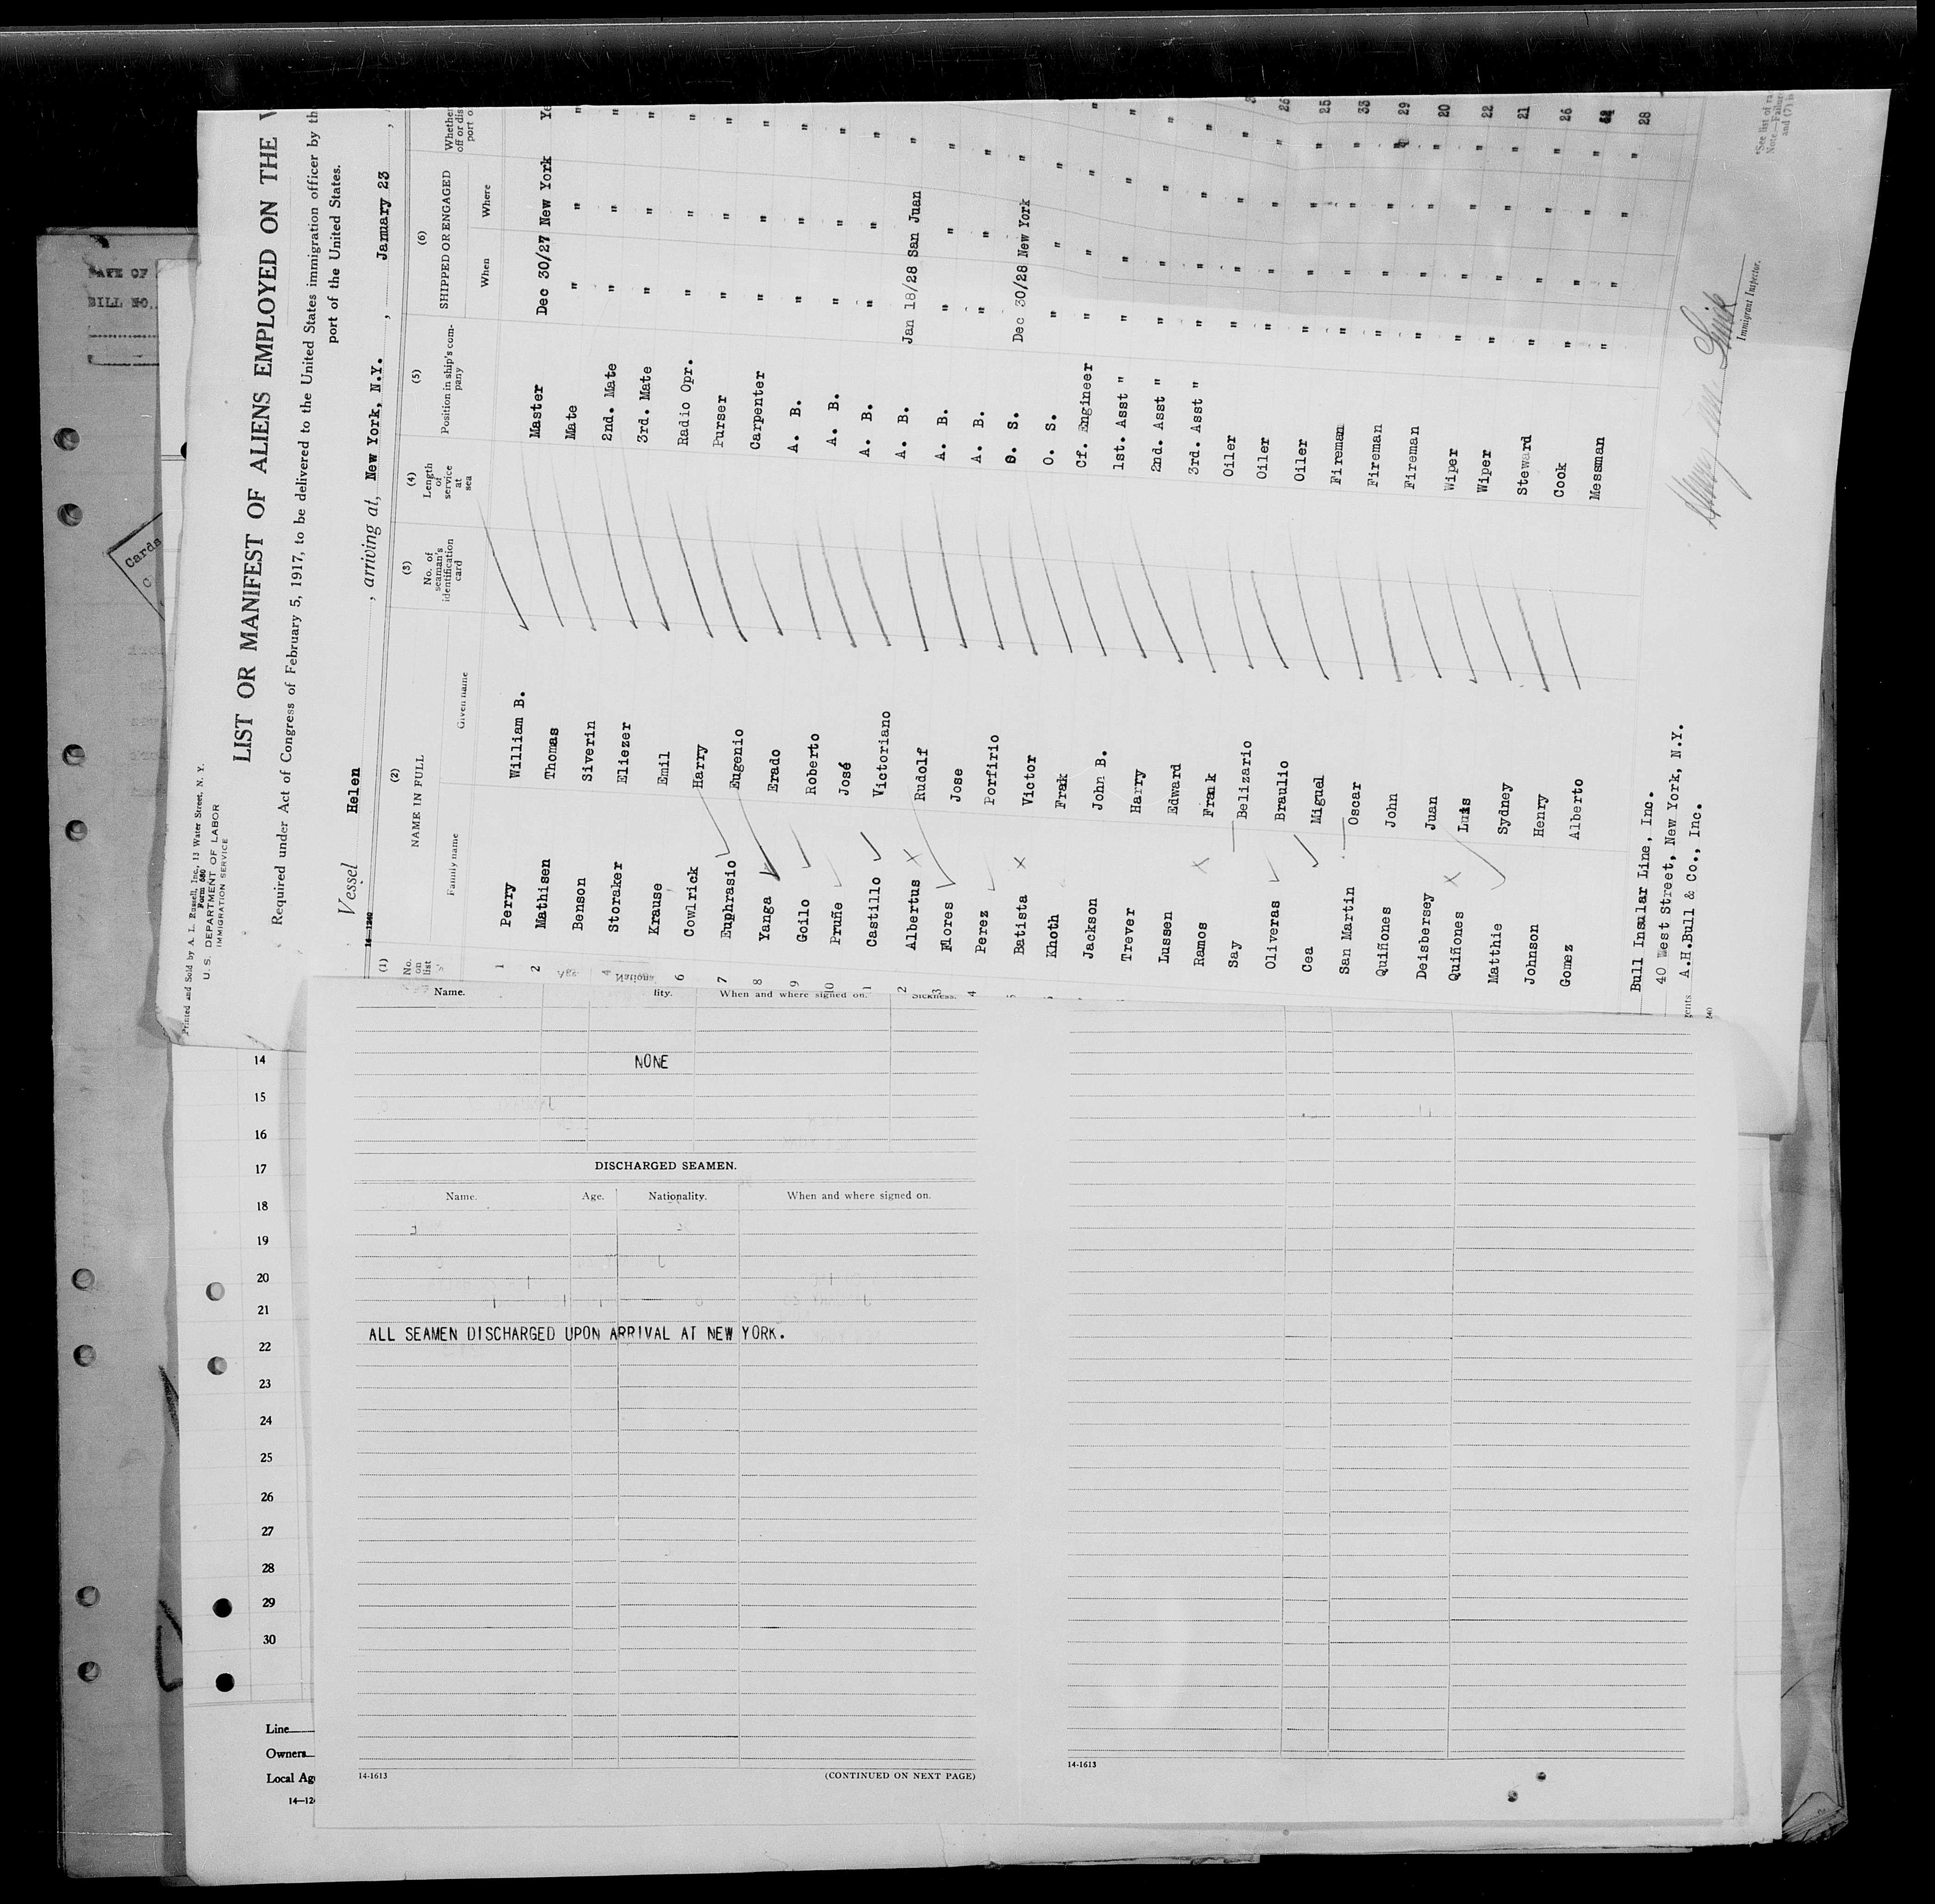 Printed and Sold by A. L. Russell, Inc., 13 Water Street, N. Y.
Form 680
U. S. DEPARTMENT OF LABOR
IMMIGRATION SERVICE
LIST OR MANIFEST OF ALIENS EMPLOYED ON THE
Required under Act of Congress of February 5, 1917, to be delivered to the United States immigration officer by th
port of the United States.
Vessel Helen , arriving at, New York, N.Y. , January 23 ,
14—1240
(1) (2) (3) (4) (5) (6)
No. on list NAME IN FULL No. of seaman's identification card Length of service at sea Position in ship's company SHIPPED OR ENGAGED Whether
off or dis
port o
Family name Given name When Where
1 Perry William B. Master Dec 30/27 New York Ye
2 Mathisen Thomas Mate " " "
Benson Siverin 2nd. Mate " " "
4 Storaker Eliezer 3rd. Mate " " "
Krause Emil Radio Opr. " " "
6 Cowlrick Harry Purser " " "
7 Euphrasio Eugenio Carpenter " " "
8 Yanga Erado A. B. " " "
9 Goilo Roberto A. B. " " "
10 Pruñe José A. B. " " "
1 Castillo Victoriano A. B. Jan 18/28 San Juan "
2 Albertus Rudolf A. B. " " "
3 Flores Jose A. B. " " "
4 Perez Porfirio O. S. Dec 30/28 New York "
Batista Victor O. S. " " "
Khoth Frak Cf. Engineer " " "
Jackson John B. 1st. Asst " " " "
Trever Harry 2nd. Asst " " " "
Lussen Edward 3rd. Asst " " " "
Ramos Frank Oiler " " "
Say Belizario Oiler " " " 26
Oliveras Braulio Oiler " " " 25
Cea Miguel Fireman " " " 33
San Martin Oscar Fireman " " " 29
Quiñones John Fireman " " " 20
Deisbersey Juan Wiper " " " 22
Quiñones Luis Wiper " " " 21
Matthie Sydney Steward " " " 26
Johnson Henry Cook " " "
Gomez Alberto Messman " " " 28
Bull Insular Line, Inc.
40 West Street, New York, N.Y.
A.H.Bull & Co., Inc.
Immigrant Inspector.
*See list of ra
Note.—Failure
and (7) is
DATE OF
BILL NO.
Cards
Name. lity. When and where signed on. Sickness.
NONE
DISCHARGED SEAMEN.
Name. Age. Nationality. When and where signed on.
ALL SEAMEN DISCHARGED UPON ARRIVAL AT NEW YORK.
14-1613 (CONTINUED ON NEXT PAGE)
14-1613
14
15
16
17
18
19
20
21
22
23
24
25
26
27
28
29
30
Line
Owners
Local Age
14—124